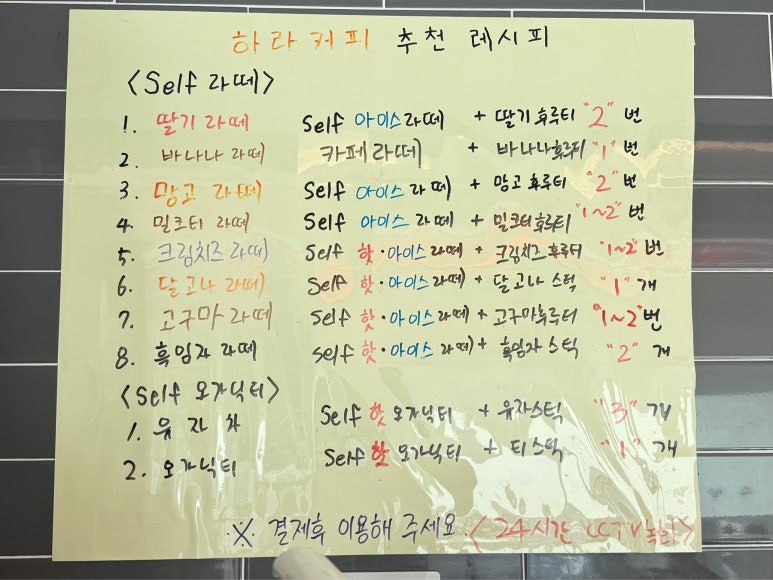 하라커피 추천 레시피
<Self 라떼>
1. 딸기 라떼 Self 아이스라떼 + 딸기 후루티 "2" 번
2. 바나나 라떼 카페라떼 + 바나나후루티 "1" 번
3. 망고 라떼 Self 아이스 라떼 + 망고 후루티 "2" 번
4. 밀크티 라떼 Self 아이스 라떼 + 밀크티후루티 "1~2" 번
5. 크림치즈 라떼 Self 핫·아이스라떼 + 크림치즈 후루티 "1~2" 번
6. 달고나 라떼 Self 핫·아이스라떼 + 달고나 스틱 "1" 개
7. 고구마 라떼 Self 핫·아이스라떼 + 고구마후루티 "1~2" 번
8. 흑임자 라떼 Self 핫·아이스라떼 + 흑임자 스틱 "2" 개
<Self 오가닉티>
1. 유자차 Self 핫 오가닉티 + 유자스틱 "3" 개
2. 오가닉티 Self 핫 오가닉티 + 티스틱 "1" 개
※ 결제후 이용해 주세요. <24시간 CCTV 녹화>